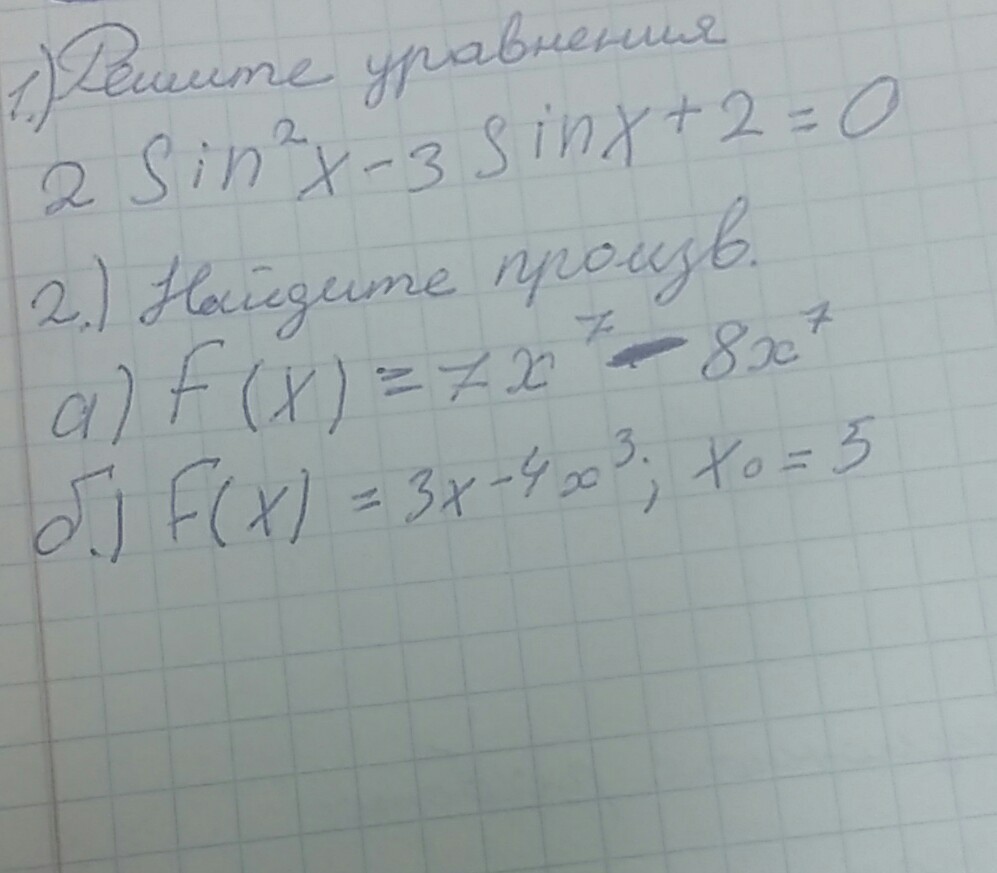 1.) Решите уравнения
2 Sin²x - 3 Sinx + 2 = 0
2.) Найдите произв.
а) f(x) = 7x⁷ - 8x⁷
б.) f(x) = 3x - 4x³; x₀ = 5